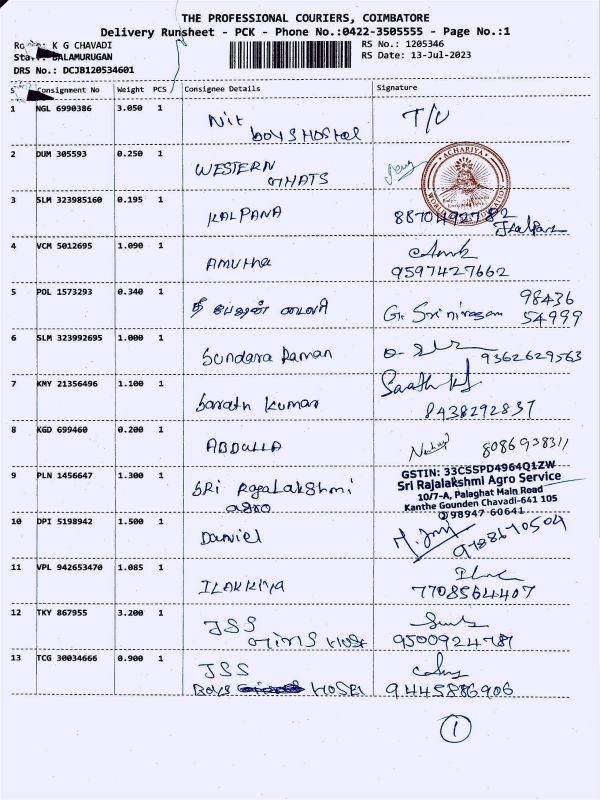 THE PROFESSIONAL COURIERS, COIMBATORE
Delivery Runsheet - PCK - Phone No.:0422-3505555 - Page No.:1
K G CHAVADI
RS No.: 1205346
BALAMURUGAN
RS Date: 13-Jul-2023
DRS No.: DCJB120534601
Consignment No Weight PCS Consignee Details Signature
1 NGL 6990386 3.050 1 Nit T/U
Boys Hostel
2 DUM 305593 0.250 1 WESTERN
GHATS
ACHARIYA
3 SLM 323985160 0.195 1 KALPANA 8870492782
4 VCM 5012695 1.090 1 Amutha
9597427662
5 POL 1573293 0.340 1 G. Srinivasan 98436
54999
6 SLM 323992695 1.000 1 Sundara Raman 9362629563
7 KMY 21356496 1.100 1 barath kumar
8438292837
8 KGD 699460 0.200 1 ABDULLA 8086938311
9 PLN 1456647 1.300 1 SRi RajaLakshmi
agro
GSTIN: 33CSSPD4964Q1ZW
Sri Rajalakshmi Agro Service
10/7-A, Palaghat Main Road
Kanthe Gounden Chavadi-641 105
98947 60641
10 DPI 5198942 1.500 1 Daniel
9788670504
11 VPL 942653470 1.085 1 ILAKKIYA
7708564407
12 TKY 867955 3.200 1 JSS
Girls Host 9500924787
13 TCG 30034666 0.900 1 JSS
Boys HOSTEL 9445886906
1